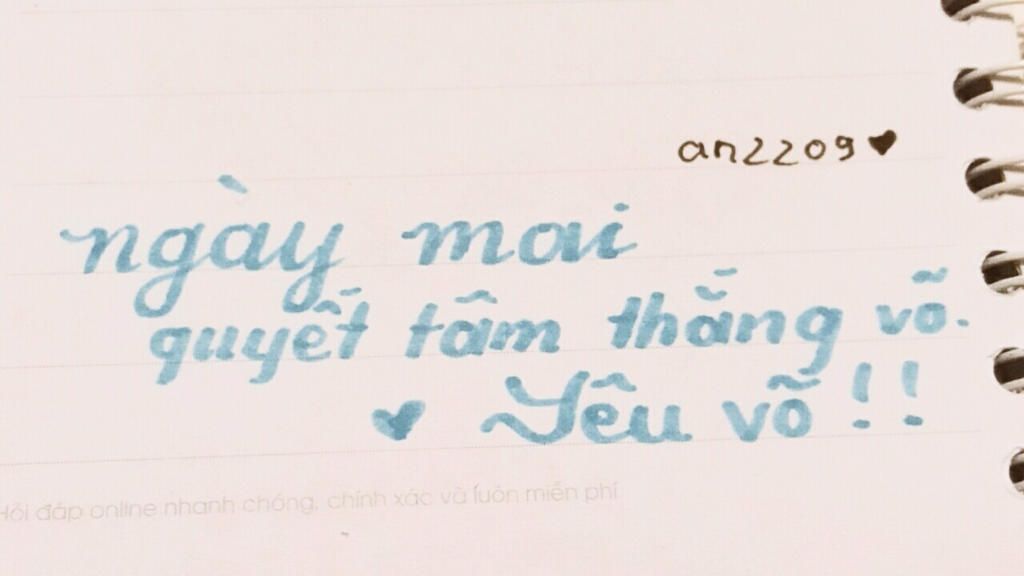 an2209
ngày mai
quyết tâm thắng võ.
Yêu võ!!
Hỏi đáp online nhanh chóng, chính xác và luôn miễn phí